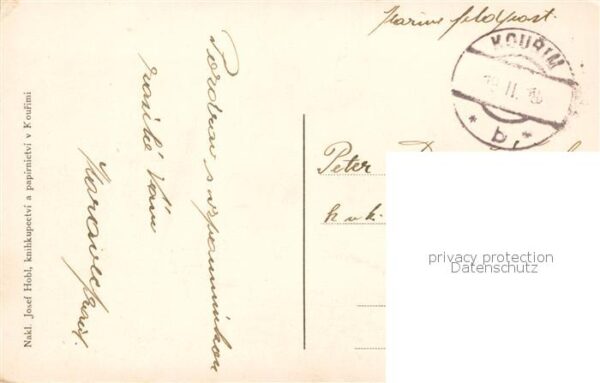 Marine feldpost.
KOUŘIM
19. II. 18
* b *
Pozdrav s vzpomínkou
zasílá Vám
Peter
k. u. k.
Nakl. Josef Hobl, knihkupectví a papírnictví v Kouřimi
privacy protection
Datenschutz